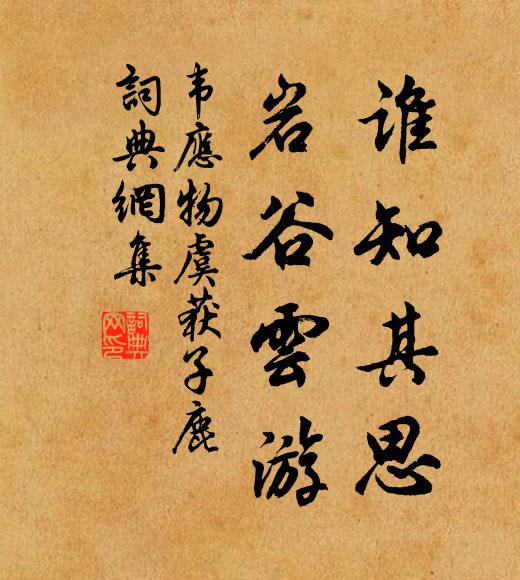 谁知其思
岩谷雲游
韦應物虞获子鹿
詞典網集
詞典网印